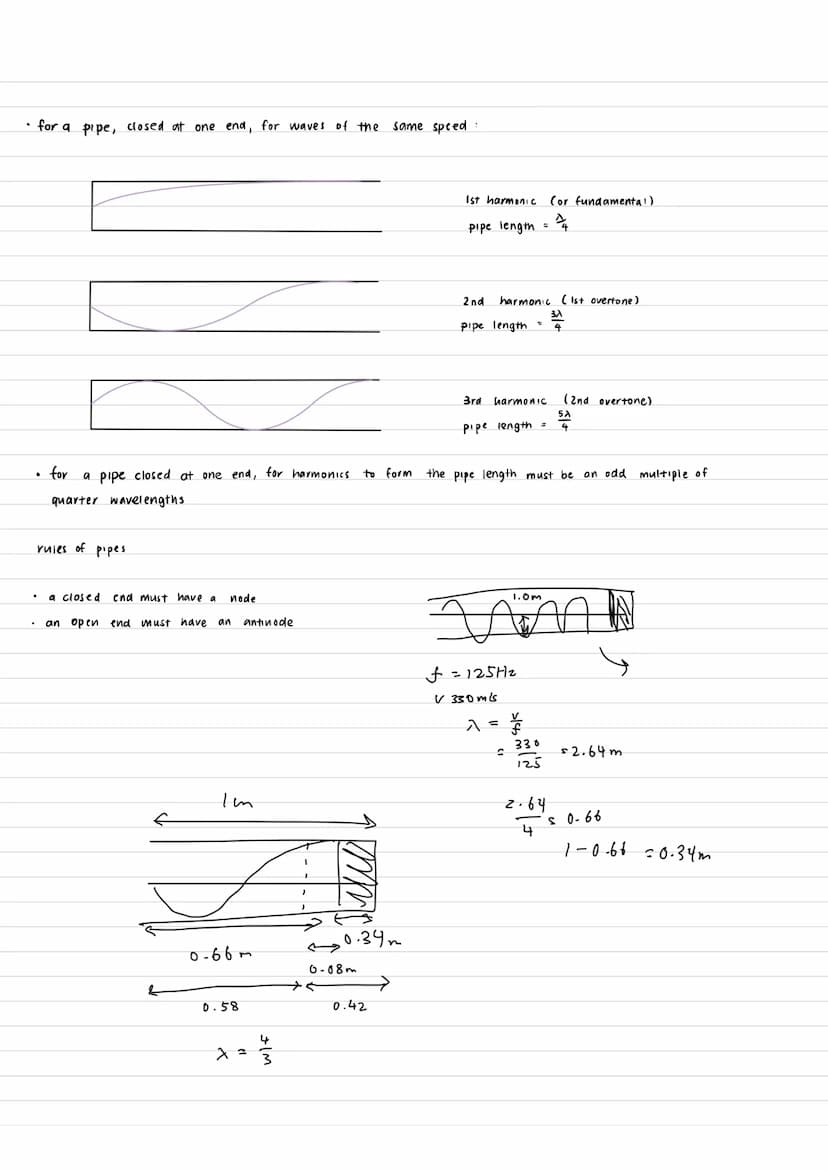 • for a pipe, closed at one end, for waves of the same speed :
1st harmonic (or fundamental)
pipe length = λ/4
2nd harmonic (1st overtone)
pipe length = 3λ/4
3rd harmonic (2nd overtone)
pipe length = 5λ/4
• for a pipe closed at one end, for harmonics to form the pipe length must be an odd multiple of
quarter wavelengths
rules of pipes
• a closed end must have a node
• an open end must have an antinode
1.0m
f = 125Hz
V 330 m/s
λ = v/f
= 330/125 = 2.64 m
2.64/4 = 0.66
1 - 0.66 = 0.34m
1m
0.66 m
0.34m
0.08m
0.58
0.42
λ = 4/3